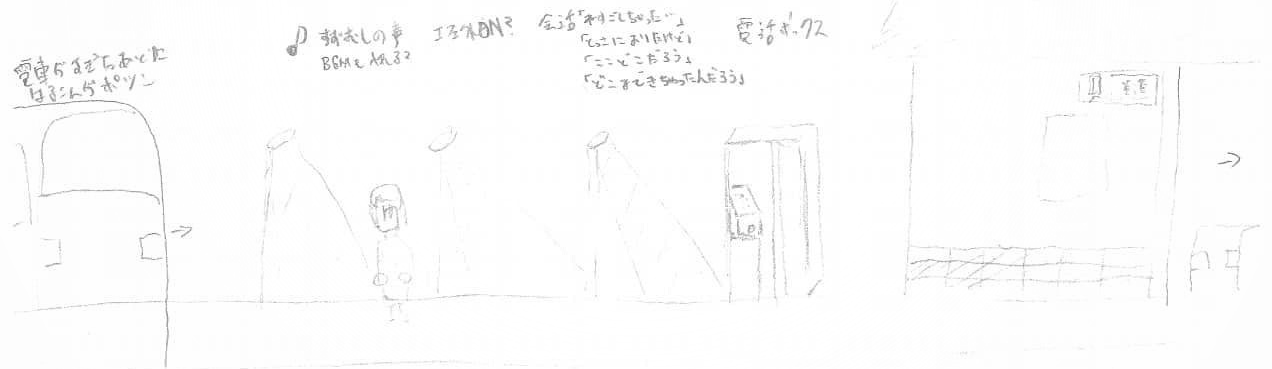 電車がすぎちあとに
はるこんがポツン
♪ すずむしの声
BGMも入れる?
エフェクトON?
会話「ねすごしちゃった…」
「とっさにおりたけど」
「ここどこだろう」
「どこまできちゃったんだろう」
電話ボックス
→
→